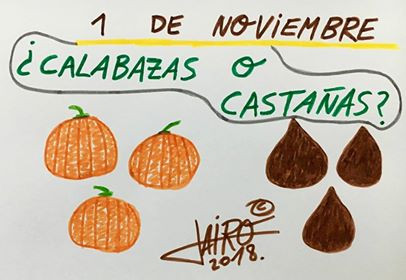 1 DE NOVIEMBRE
¿CALABAZAS O
CASTAÑAS?
JAIRO
2018.